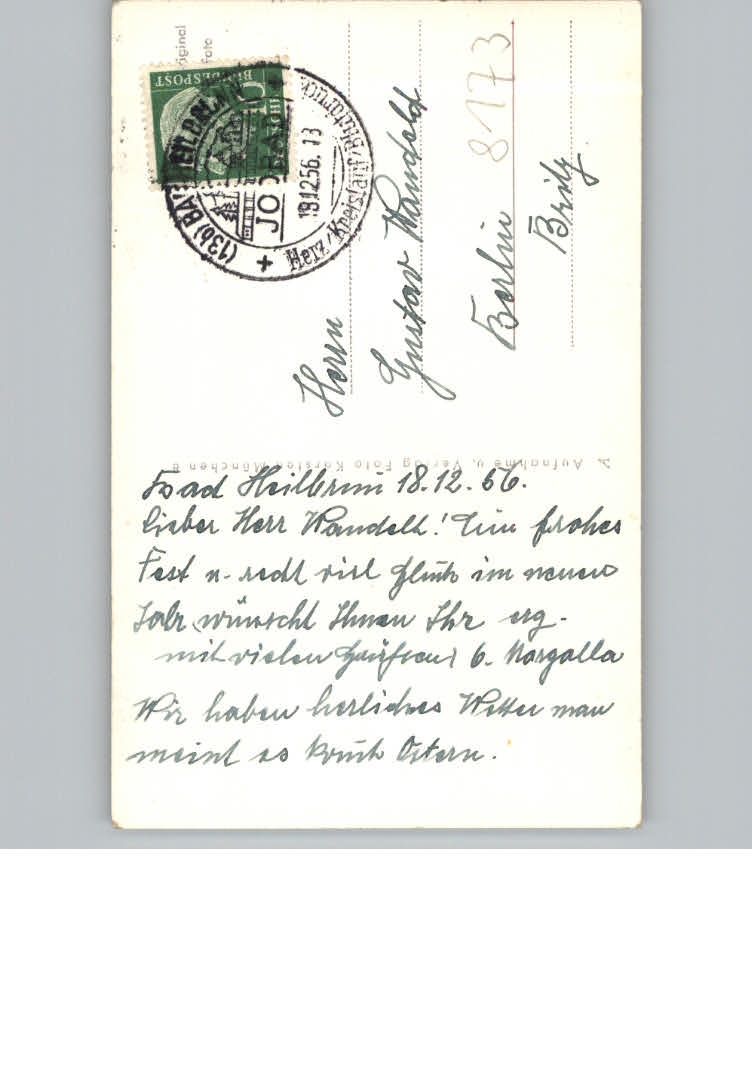 Bad Heilbrunn 18.12.56.
Lieber Herr Wandelt! Ein frohes
Fest u. recht viel Glück im neuen
Jahr wünscht Ihnen Ihr erg.
mit vielen Grüssen G. Margalla
Wir haben herliches Wetter man
meint es komt Ostern.
Herrn
Gustav Wandelt
Berlin
Britz
8173
Aufnahme u. Verlag Foto Kersten München 8
Original
Foto
BUNDESPOST
(13b) BAD HEILBRUNN
JODBAD
18.12.56. 13
Herz/Kreislauf/Blutdruck